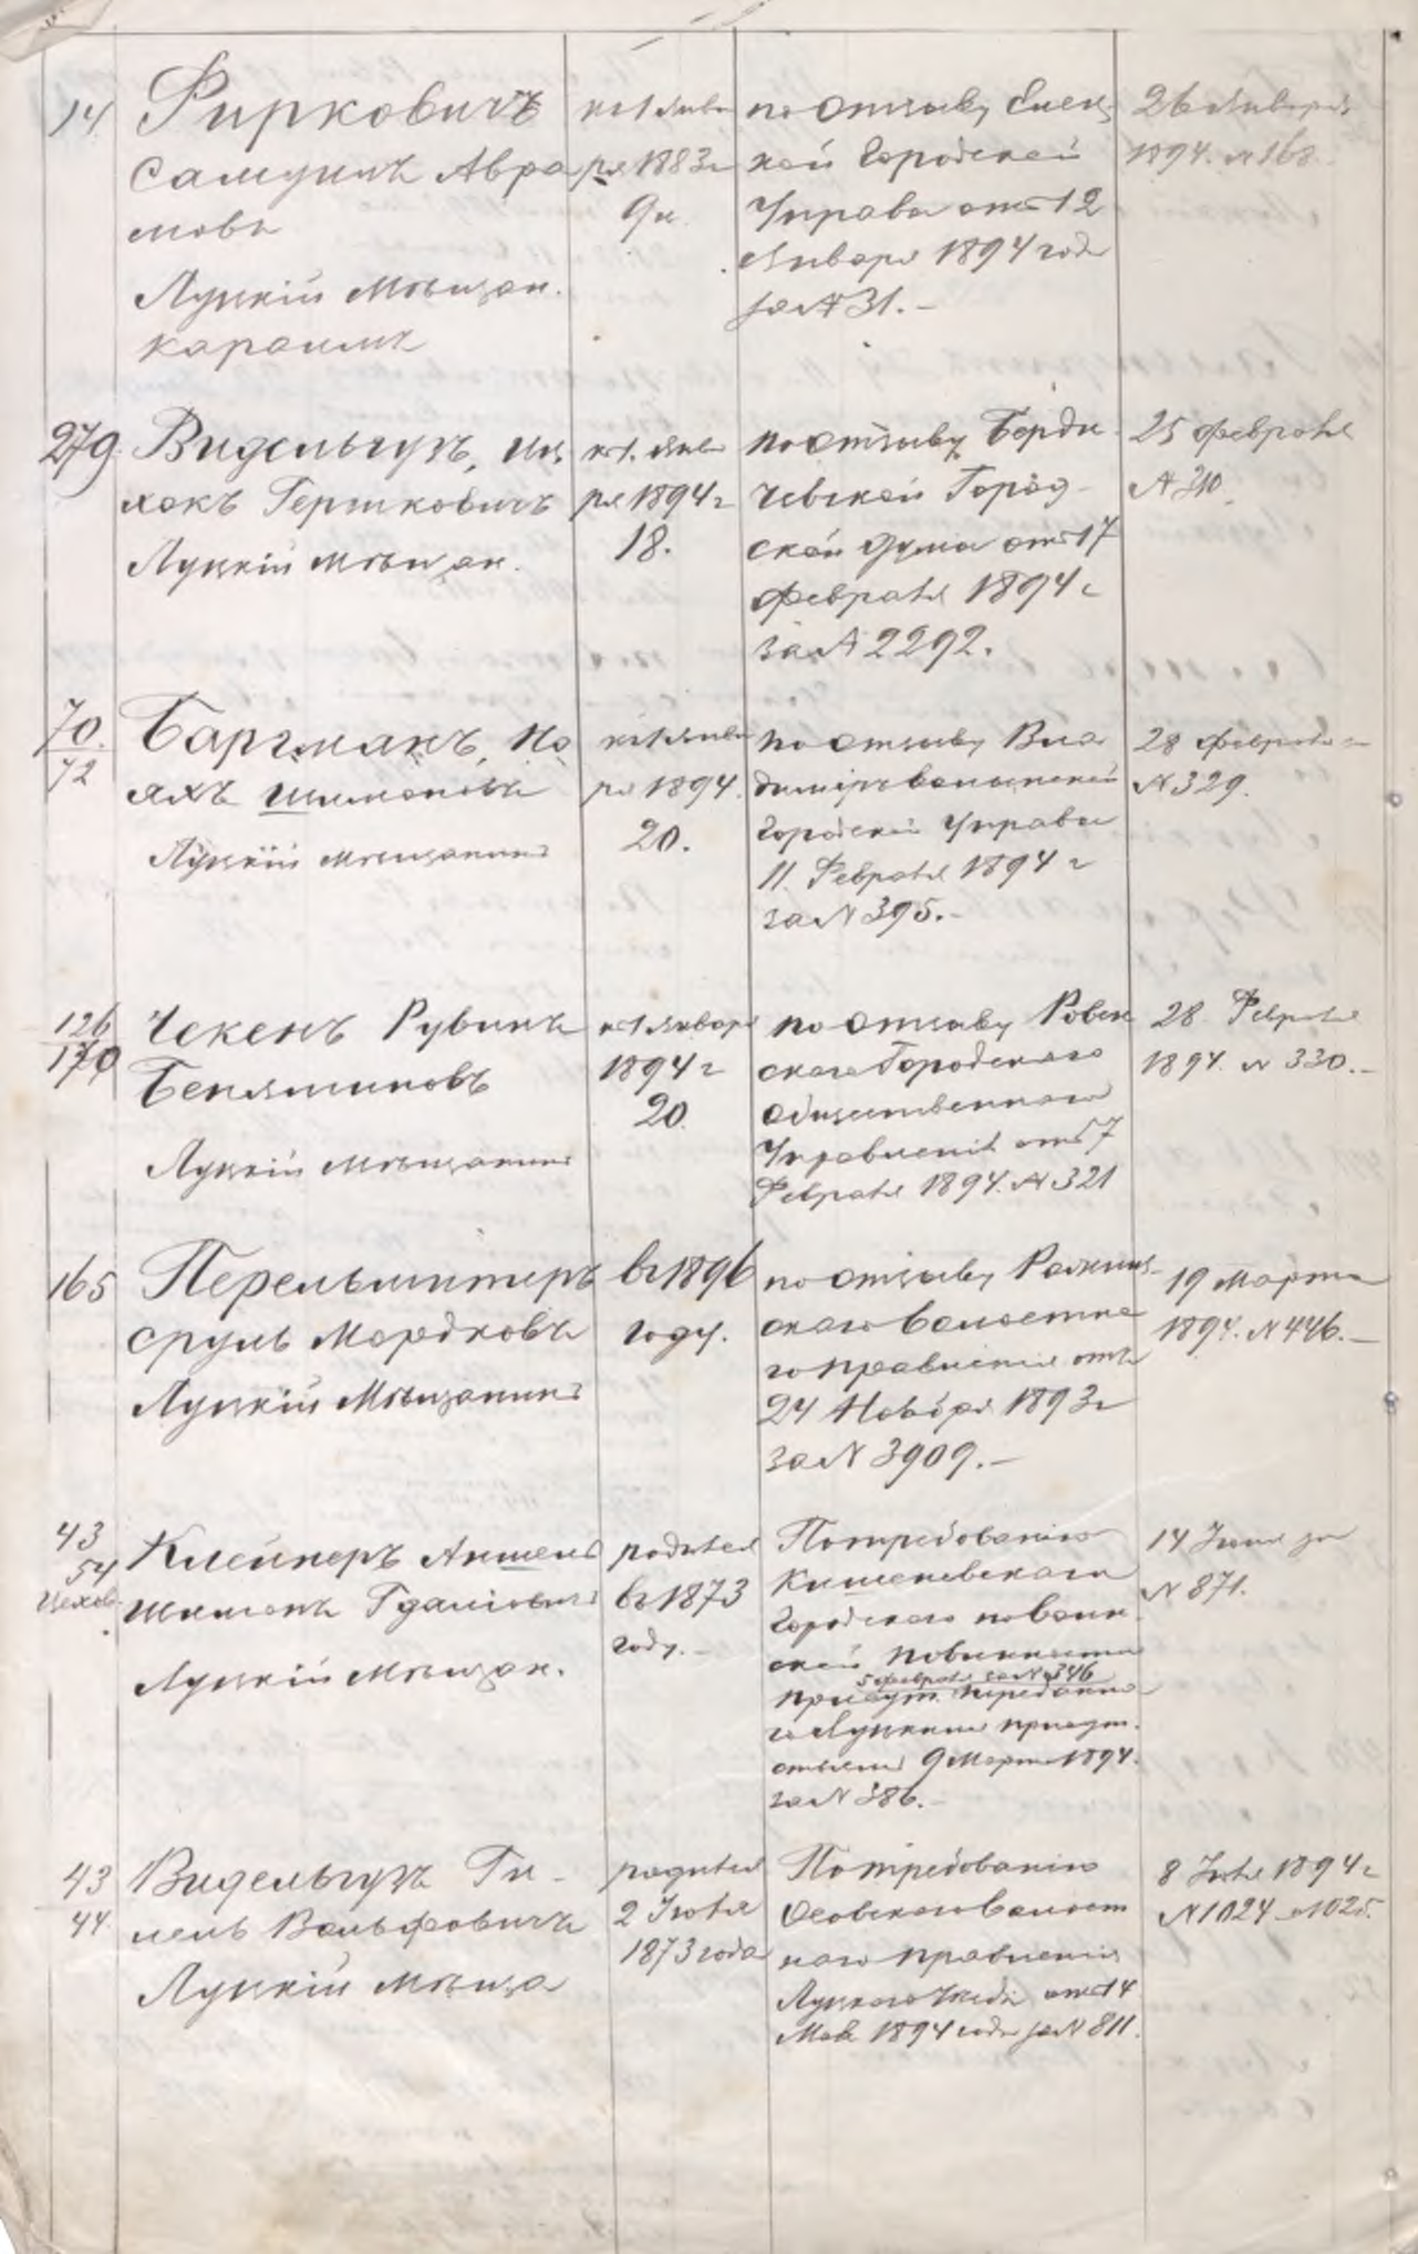 14
Фирковичъ
Самуилъ Авра
мовъ
Луцкій Мѣщан.
караимъ
къ 1 Янва
ря 1883 г
9 л.
по отзыву
ской Городской
Управы отъ 12
Января 1894 года
за № 31.–
26 Января
1894. № 168.
279
Видельгузъ, Иц
хокъ Гершковичъ
Луцкій мѣщан.
к 1. Янва
ря 1894 г
18.
по отзыву Берди
чевской Город
ской Думы отъ 17
Февраля 1894 г
за № 2292.
25 февраля
№ 310
70
72
Баргманъ, Но
яхъ Шимоновъ
Луцкій мѣщанинъ
къ 1 Янва
ря 1894.
20.
по отзыву Вла
диміръ Волынской
Городской Управы
11. Февраля 1894 г
за № 395.–
28 февраля
№ 329.
126
170
Чекенъ Рувинъ
Беняминовъ
Луцкій мѣщанинъ
к 1 Января
1894 г
20.
по отзыву Ровен
скаго Городского
Общественнаго
Управленія отъ 7
Февраля 1894. № 321
28 Февраля
1894. № 330.–
165
Перельмитеръ
Сруль Мордковъ
Луцкій Мѣщанинъ
въ 1896
году.
по отзыву
скаго Волостна
го Правленія отъ
24 Ноября 1893 г
за № 3909.–
19 Марта
1894. № 446.–
43
54
Цехов.
Клейнеръ Аншель
Шимонъ
Луцкій Мѣщан.
родился
въ 1873
году.–
По требованію
Кишеневскаго
Городского по воин
ской повинности
5 февраля за № 346
присут. переданна
го Луцкимъ присут.
ствіемъ 9 Марта 1894.
за № 386.–
14 Іюня за
№ 871.
43
44.
Видельгузъ Ги–
мель Вольфовичъ
Луцкій мѣща
родился
2 Іюля
1873 года
По требованію
Волост
наго правленія
Луцкаго Уѣзда отъ 14
Мая 1894 года за № 811.
8 Іюля 1894 г
№ 1024 и 1025.